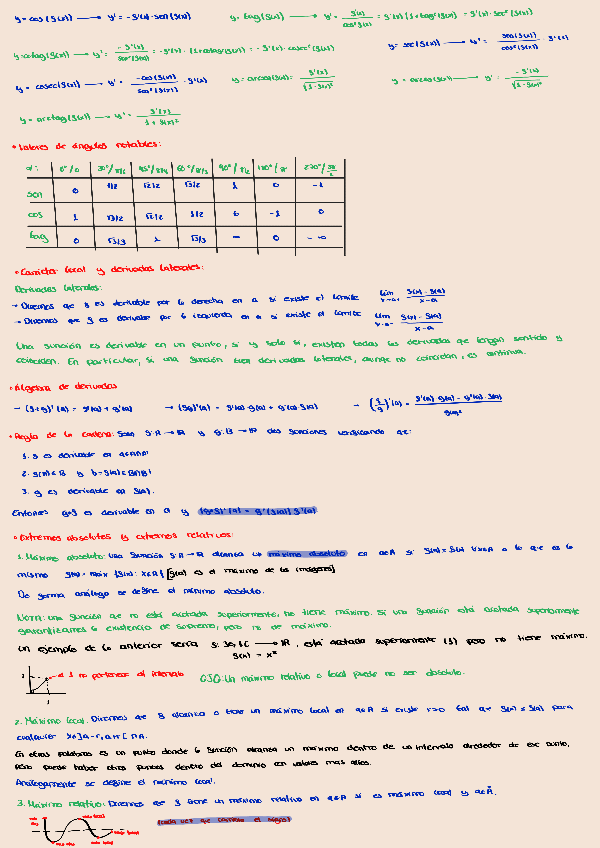 y = cos (f(x)) → y' = -f'(x)·sen (f(x))    y = tag (f(x)) → y' = f'(x) / cos²(f(x)) = f'(x)·(1+tag²(f(x))) = f'(x)·sec²(f(x))
y = cotag (f(x)) → y' = -f'(x) / sen²(f(x)) = -f'(x)·(1+cotag²(f(x))) = -f'(x)·cosec²(f(x))    y = sec (f(x)) → y' = sen(f(x)) / cos²(f(x)) · f'(x)
y = cosec (f(x)) → y' = -cos(f(x)) / sen²(f(x)) · f'(x)    y = arcsen
y = arctag (f(x)) → y' = f'(x) / 1 + f(x)²
• Valores de ángulos notables:
α: 0°/0 30°/π/6 45°/π/4 60°/π/3 90°/π/2 180°/π 270°/3π/2
sen 0 1/2 √2/2 √3/2 1 0 -1
cos 1 √3/2 √2/2 1/2 0 -1 0
tag 0 √3/3 1
• Carácter local y derivadas laterales:
Derivadas laterales:
→ Diremos que f es derivable por la derecha en a si existe el límite lim x→a+ f(x) - f(a) / x-a
→ Diremos que f es derivable por la izquierda en a si existe el límite lim x→a- f(x) - f(a) / x-a
Una función es derivable en un punto, si y solo si, existen todas las derivadas que tengan sentido y
coinciden. En particular, si una función tien derivadas laterales, aunque no coincidan, es continua.
• Álgebra de derivadas
→ (f+g)'(a) = f'(a) + g'(a)    → (fg)'(a) = f'(a)·g(a) + g'(a)·f(a)    → (f/g)'(a) = f'(a)·g(a) - g'(a)·f(a) / g(a)²
• Regla de la cadena: Sean f:A→ℝ y g:B→ℝ dos funciones verificando que:
1. f es derivable en a∈A∩A'
2. f(A)⊂B y b=f(a)∈B∩B'
3. g es derivable en f(a).
Entonces g∘f es derivable en a y (g∘f)'(a) = g'(f(a))·f'(a)
• Extremos absolutos y extremos relativos:
1. Máximo absoluto: una función f:A→ℝ alcanza un máximo absoluto en a∈A si f(x)≤f(a) ∀x∈A o lo que es lo
mismo f(a) = máx {f(x): x∈A} [f(a) es el máximo de las imágenes]
De forma análoga se define el mínimo absoluto.
NOTA: una función que no está acotada superiormente, no tiene máximo. Si una función está acotada superiormente
garantizamos la existencia de supremo, pero no de máximo.
Un ejemplo de lo anterior sería f: → ℝ, está acotada superiormente (1) pero no tiene máximo.
f(x) = x²
1 no pertenece al intervalo    OJO: Un máximo relativo o local puede no ser absoluto.
2. Máximo local: Diremos que f alcanza o tiene un máximo local en a∈A si existe r>0 tal que f(x)≤f(a) para
cualquier x∈]a-r,a+r[∩A.
En otras palabras es un punto donde la función alcanza un máximo dentro de un intervalo alrededor de ese punto,
pero puede haber otros puntos dentro del dominio con valores más altos.
Análogamente se define el mínimo local.
3. Máximo relativo: Diremos que f tiene un máximo relativo en a∈A si es máximo local y a∈Å.
(cada vez que cambia el signo)